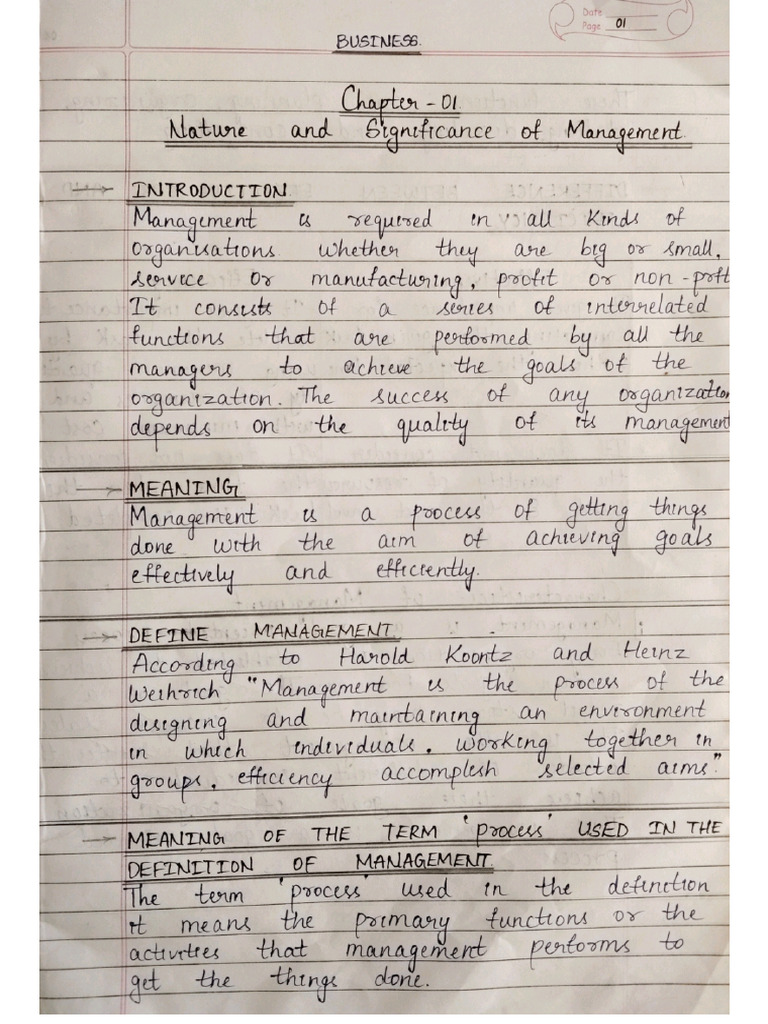 Date
Page 01
BUSINESS.
Chapter - 01.
Nature and Significance of Management.
→ INTRODUCTION.
Management is required in all kinds of
organisations whether they are big or small,
service or manufacturing, profit or non-proft
It consists of a series of interrelated
functions that are performed by all the
managers to achieve the goals of the
organization. The success of any organization
depends on the quality of its management
→ MEANING
Management is a process of getting things
done with the aim of achieving goals
effectively and efficiently.
→ DEFINE MANAGEMENT.
According to Harold Koontz and Heinz
Weihrich "Management is the process of the
designing and maintaining an environment
in which individuals, working together in
groups, efficiency accomplish selected aims."
→ MEANING OF THE TERM 'process' USED IN THE
DEFINITION OF MANAGEMENT.
The term 'process' used in the definition
it means the primary functions or the
activities that management performs to
get the things done.